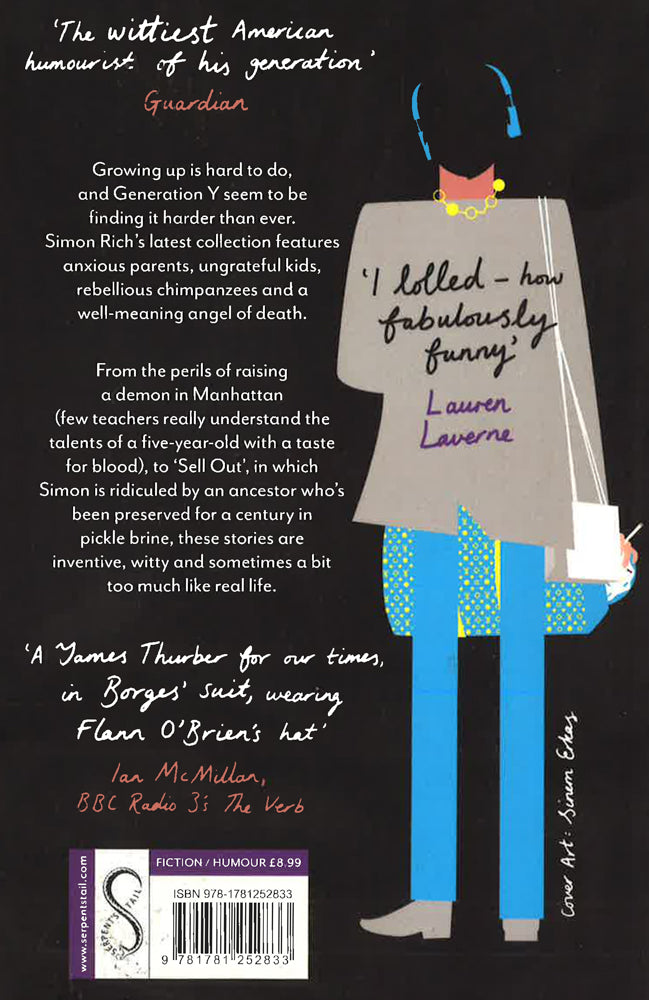 ‘The wittiest American
humourist of his generation’
Guardian
Growing up is hard to do,
and Generation Y seem to be
finding it harder than ever.
Simon Rich’s latest collection features
anxious parents, ungrateful kids,
rebellious chimpanzees and a
well-meaning angel of death.
From the perils of raising
a demon in Manhattan
(few teachers really understand the
talents of a five-year-old with a taste
for blood), to ‘Sell Out’, in which
Simon is ridiculed by an ancestor who’s
been preserved for a century in
pickle brine, these stories are
inventive, witty and sometimes a bit
too much like real life.
‘A James Thurber for our times,
in Borges’ suit, wearing
Flann O’Brien’s hat’
Ian McMillan,
BBC Radio 3’s The Verb
‘I lolled – how
fabulously
funny’
Lauren
Laverne
Cover Art: Sinem Erkas
www.serpentstail.com
SERPENT'S TAIL
FICTION / HUMOUR £8.99
ISBN 978-1781252833
9 781781 252833